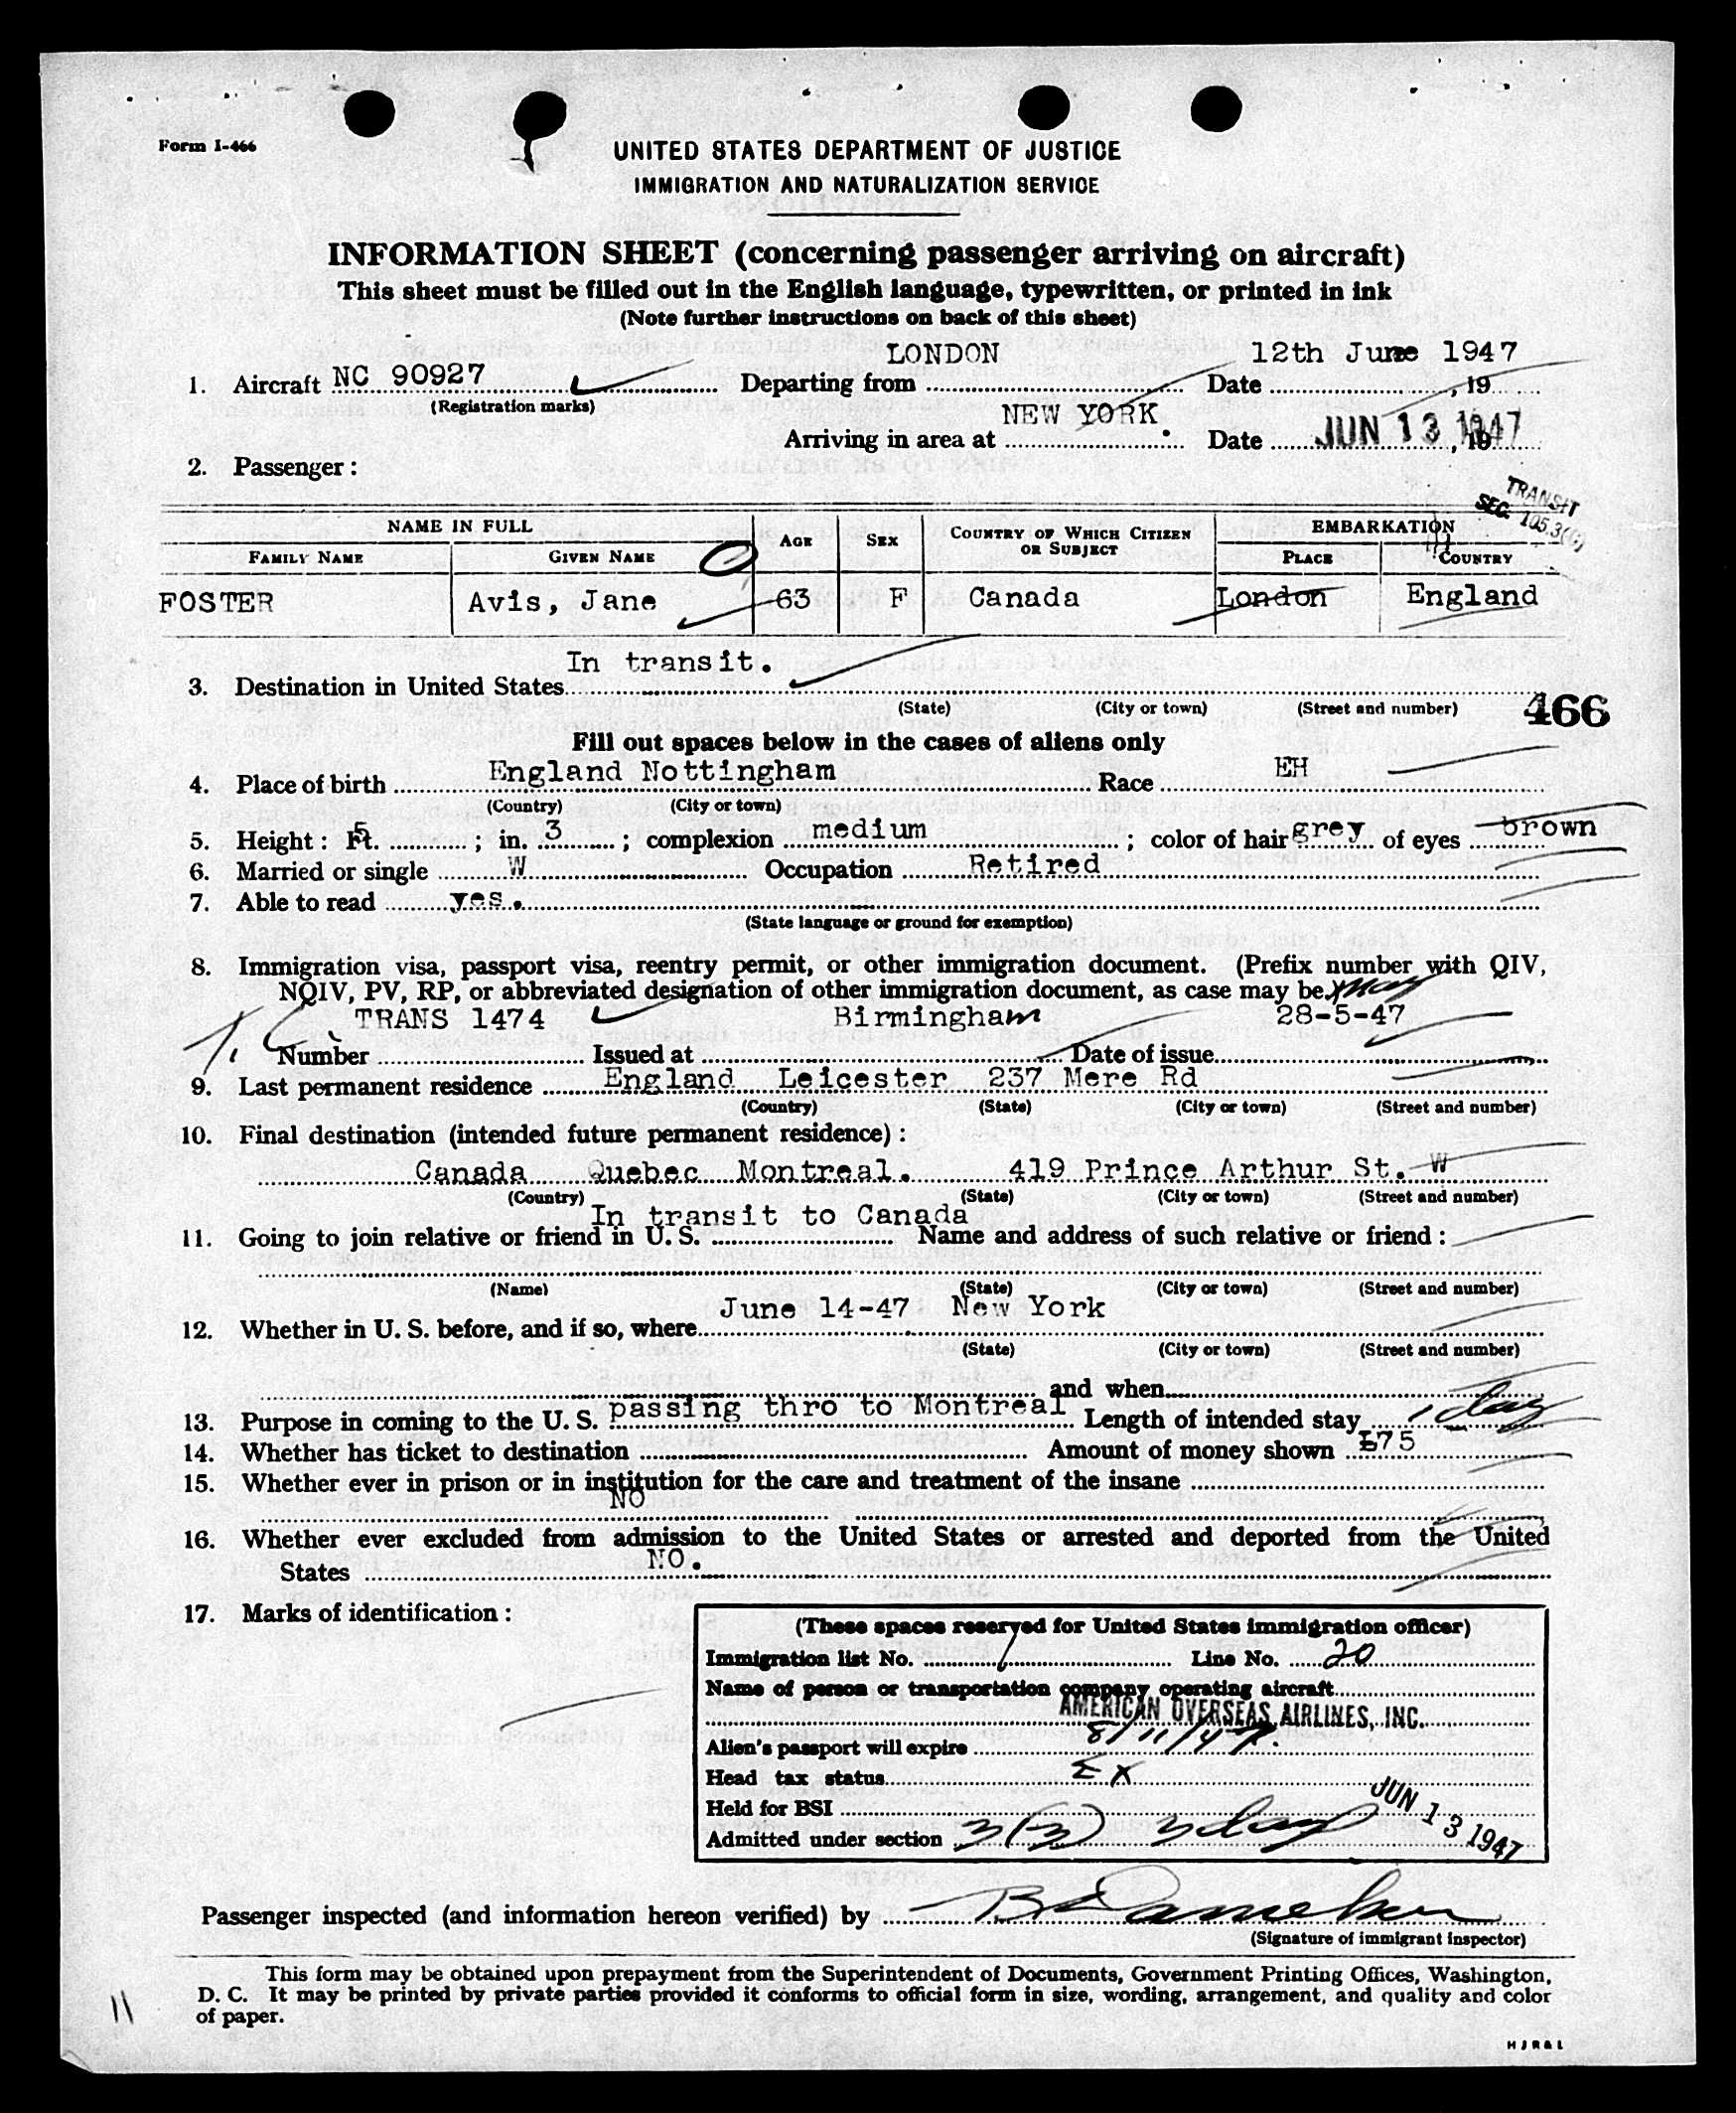 Form I-466
UNITED STATES DEPARTMENT OF JUSTICE
IMMIGRATION AND NATURALIZATION SERVICE
INFORMATION SHEET (concerning passenger arriving on aircraft)
This sheet must be filled out in the English language, typewritten, or printed in ink
(Note further instructions on back of this sheet)
1. Aircraft NC 90927 Departing from LONDON Date 12th June 1947, 19
(Registration marks)
Arriving in area at NEW YORK. Date JUN 13 1947, 19
2. Passenger:
TRANSIT
SEC. 105.3(
NAME IN FULL AGE SEX COUNTRY OF WHICH CITIZEN OR SUBJECT EMBARKATION
FAMILY NAME GIVEN NAME PLACE COUNTRY
FOSTER Avis, Jane 63 F Canada London England
3. Destination in United States In transit.
(State) (City or town) (Street and number)
466
Fill out spaces below in the cases of aliens only
4. Place of birth England Nottingham Race EH
(Country) (City or town)
5. Height: Ft. 5 ; in. 3 ; complexion medium ; color of hair grey of eyes brown
6. Married or single W Occupation Retired
7. Able to read yes.
(State language or ground for exemption)
8. Immigration visa, passport visa, reentry permit, or other immigration document. (Prefix number with QIV,
NQIV, PV, RP, or abbreviated designation of other immigration document, as case may be.)
Number TRANS 1474 Issued at Birmingham Date of issue 28-5-47
9. Last permanent residence England Leicester 237 Mere Rd
(Country) (State) (City or town) (Street and number)
10. Final destination (intended future permanent residence):
Canada Quebec Montreal. 419 Prince Arthur St. W
(Country) (State) (City or town) (Street and number)
11. Going to join relative or friend in U. S. In transit to Canada Name and address of such relative or friend:
(Name) (State) (City or town) (Street and number)
12. Whether in U. S. before, and if so, where June 14-47 New York
(State) (City or town) (Street and number)
and when
13. Purpose in coming to the U. S. passing thro to Montreal Length of intended stay 1 day
14. Whether has ticket to destination Amount of money shown £75
15. Whether ever in prison or in institution for the care and treatment of the insane
NO
16. Whether ever excluded from admission to the United States or arrested and deported from the United
States NO.
17. Marks of identification:
(These spaces reserved for United States immigration officer)
Immigration list No. 1 Line No. 20
Name of person or transportation company operating aircraft
AMERICAN OVERSEAS AIRLINES, INC.
Alien's passport will expire 8/11/47.
Head tax status EX
Held for BSI
Admitted under section 3(3) 3 day JUN 13 1947
Passenger inspected (and information hereon verified) by
(Signature of immigrant inspector)
This form may be obtained upon prepayment from the Superintendent of Documents, Government Printing Offices, Washington,
D. C. It may be printed by private parties provided it conforms to official form in size, wording, arrangement, and quality and color
of paper.
11
H J R & L